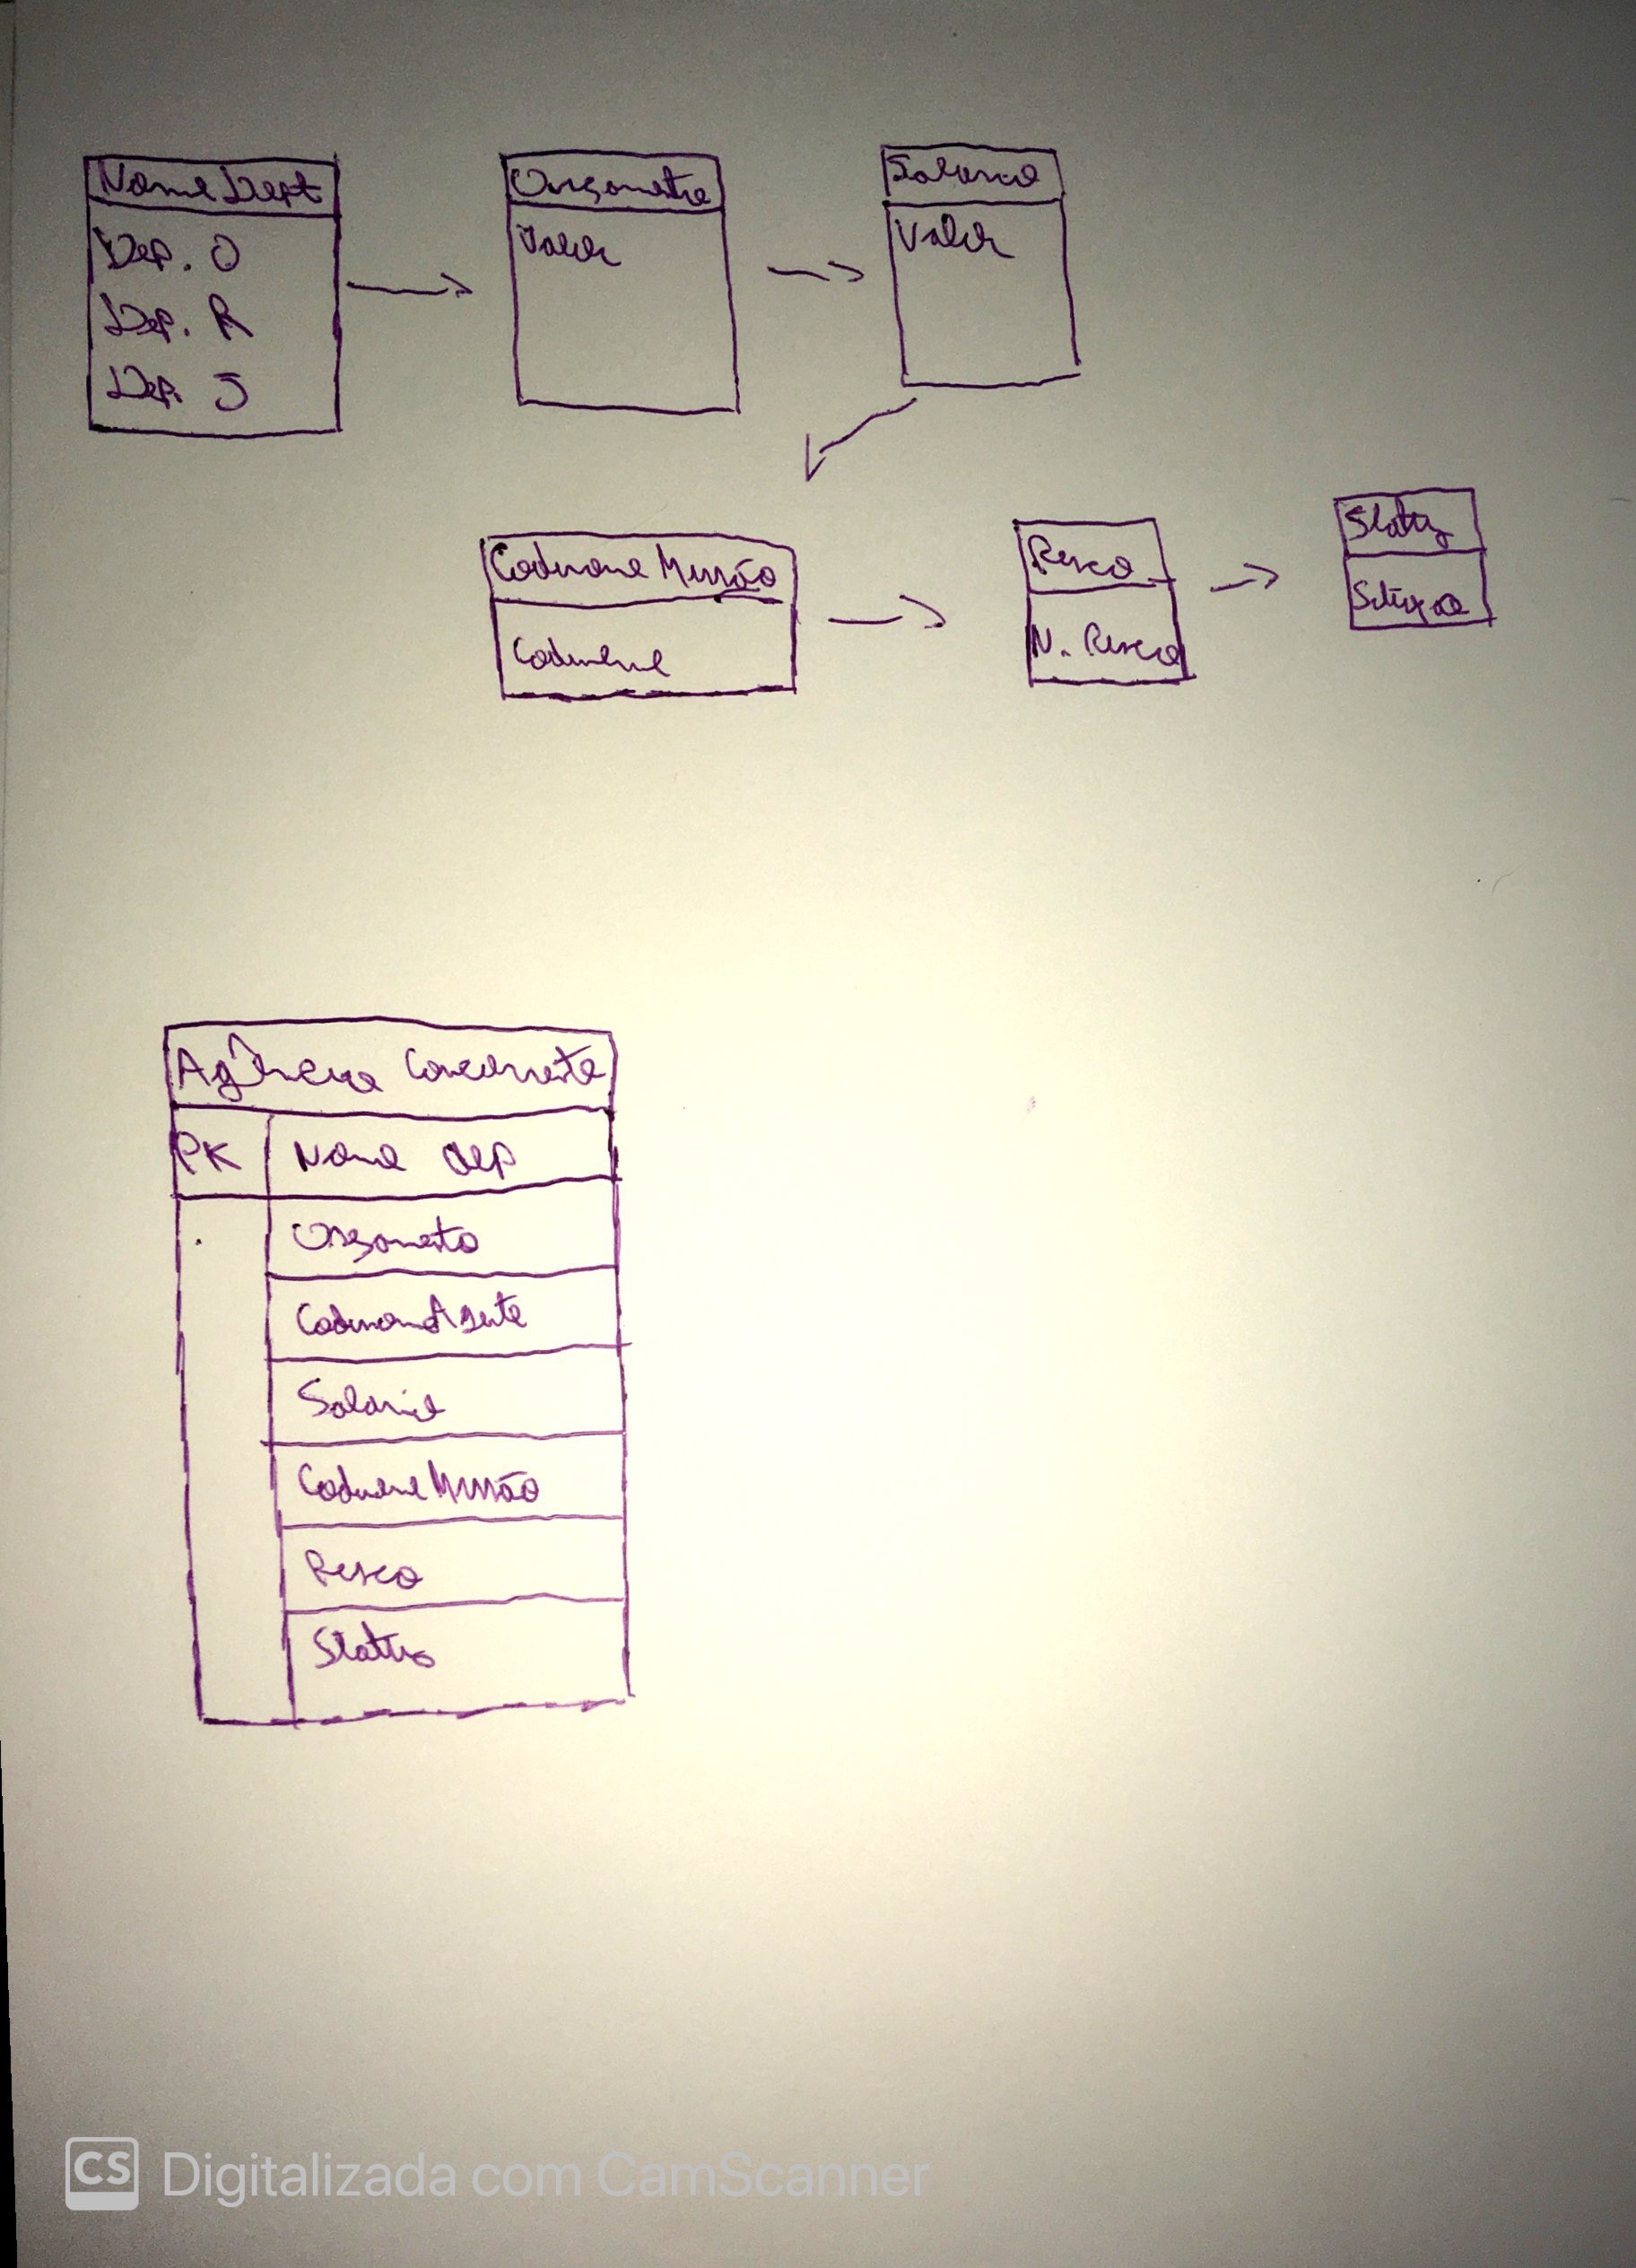 Nome Dept
Dep. O
Dep. R
Dep. J
Orçamento
Valor
Salario
Valor
Codinome Missão
Codinome
Risco
N. Risco
Status
Agência Concorrente
PK Nome DEP
Orçamento
Codinome Agente
Salario
Codinome Missão
Risco
Status
CS Digitalizada com CamScanner